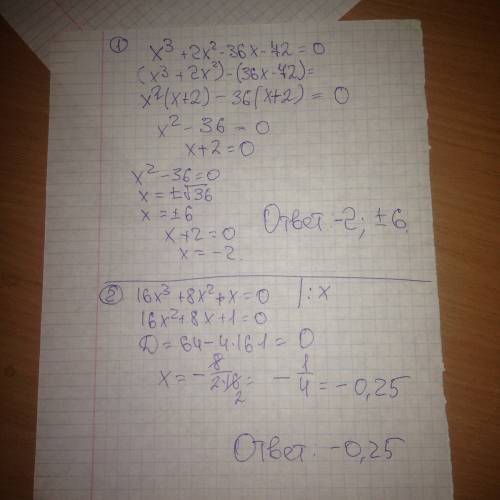 ① x³ + 2x² - 36x - 72 = 0
(x³ + 2x²) - (36x - 72) =
x²(x+2) - 36(x+2) = 0
x² - 36 = 0
x + 2 = 0
x² - 36 = 0
x = ±√36
x = ±6
Ответ -2; ±6.
x + 2 = 0
x = -2.
② 16x³ + 8x² + x = 0 | : x
16x² + 8x + 1 = 0
D = 64 - 4·16·1 = 0
x = - 8/(2·16) = - 1/4 = -0,25
2
Ответ: -0,25